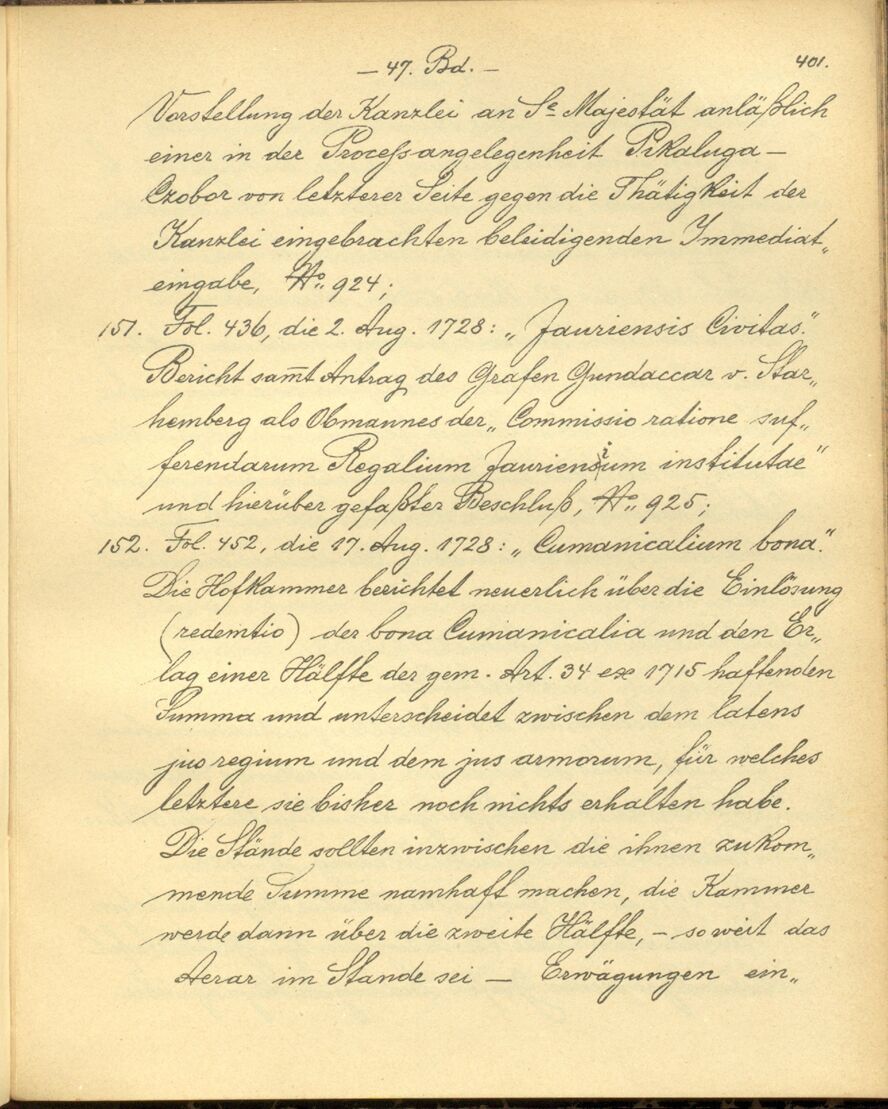 — 47. Bd. —
401.
Vorstellung der Kanzlei an Se Majestät anläßlich
einer in der Proceßangelegenheit Pikaluga —
Czobor von letzterer Seite gegen die Thätigkeit der
Kanzlei eingebrachten beleidigenden Immediat„
eingabe, No„ 924;
151. Fol. 436, die 2. Aug. 1728: „Jauriensis Civitas."
Bericht sam̅t Antrag des Grafen Gundaccar v. Star„
hemberg als Obmannes der „Commissio ratione suf„
ferendarum Regalium Jauriensium institutae"
und hierüber gefaßter Beschluß, No„ 925;
152. Fol. 452, die 17. Aug. 1728: „Cumanicalium bona."
Die Hofkammer berichtet neuerlich über die Einlösung
(redemtio) der bona Cumanicalia und den Er„
lag einer Hälfte der gem. Art. 34 ex 1715 haftenden
Summa und unterscheidet zwischen dem latens
jus regium und dem jus armorum, für welches
letztere sie bisher noch nichts erhalten habe.
Die Stände sollten inzwischen die ihnen zukom„
mende Summe namhaft machen, die Kammer
werde dann über die zweite Hälfte, – soweit das
Aerar im Stande sei — Erwägungen ein„